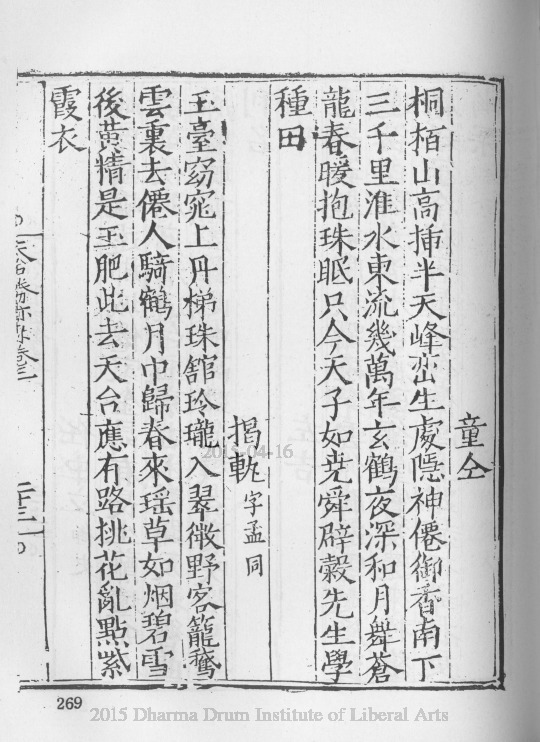 童仝
桐栢山高揷半天峰巒生處隱神僊御香南下
三千里淮水東流幾萬年玄鶴夜深和月舞蒼
龍春暖抱珠眠只今天子如尭舜辟糓先生學
種田
揭軏字孟同
玉臺窈窕上丹梯珠舘玲瓏入翠微野客籠鵞
雲裏去僊人騎鶴月中歸春來瑶草如烟碧雪
後黃精是玉肥此去天台應有路挑花亂點紫
霞衣
卷三
二十三
269
2015-04-16
2015 Dharma Drum Institute of Liberal Arts